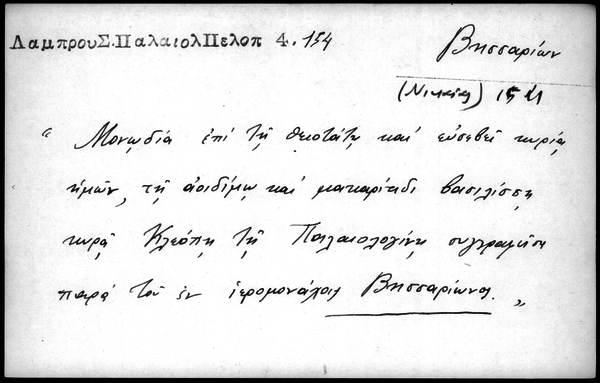 ΛαμπρουΣ.ΠαλαιολΠελοπ 4.154
Βησσαρίων
(Νικαίας)
" Μονῳδία ἐπί τῇ θειοτάτῃ καί εὐσεβεῖ κυρίᾳ
ἡμῶν, τῇ ἀοιδίμῳ καί μακαρίτιδι βασιλίσσῃ
κυρᾷ Κλεόπῃ τῇ Παλαιολογίνῃ συγγραφεῖσα
παρά τοῦ ἐν ἱερομονάχοις Βησσαρίωνος. "